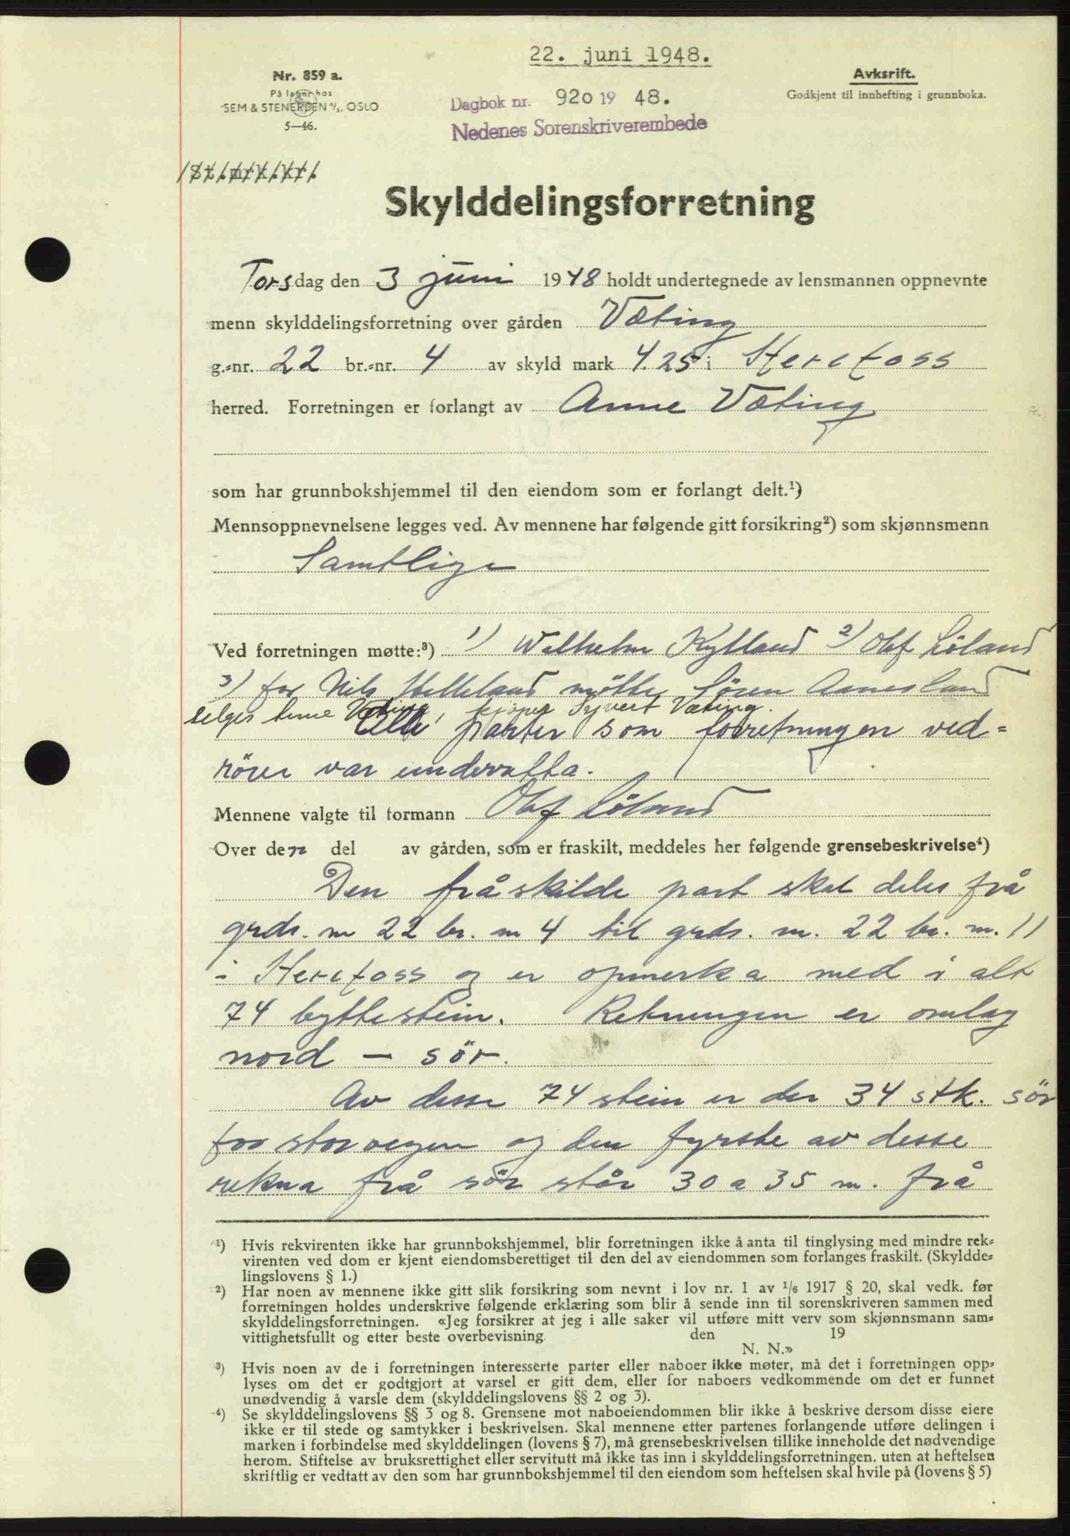 22. juni 1948.
Nr. 859 a.
På lager hos
SEM & STENERSEN A/S, OSLO
5—46.
Dagbok nr. 920 1948.
Nedenes Sorenskriverembede
Avskrift.
Godkjent til innhefting i grunnboka.
Skylddelingsforretning
Torsdag den 3 juni 1948 holdt undertegnede av lensmannen oppnevnte
menn skylddelingsforretning over gården Væting
g.-nr. 22 br.-nr. 4 av skyld mark 4.25 i Herefoss
herred. Forretningen er forlangt av Anne Væting
som har grunnbokshjemmel til den eiendom som er forlangt delt.¹)
Mennsoppnevnelsene legges ved. Av mennene har følgende gitt forsikring²) som skjønnsmenn
Samtlige
Ved forretningen møtte:³) 1) Wilhelm Kylland 2) Olaf Løland
3) for Nils Helleland møtte Sören Aanesland
selger Anne Væting, kjøper Syvert Væting.
Alle parter som forretningen ved-
rörer var underretta.
Mennene valgte til formann Olaf Löland
Over den del av gården, som er fraskilt, meddeles her følgende grensebeskrivelse⁴)
Den fråskilde part skal deles frå
grds. nr 22 br. nr 4 til grds. nr. 22 br. nr. 11
i Herefoss og er opmerka med i alt
74 byttestein. Retningen er omlag
nord — sör.
Av desse 74 stein er der 34 stk. sör
for storvegen og den fyrste av desse
rekna frå sör står 30 a 35 m. frå
¹) Hvis rekvirenten ikke har grunnbokshjemmel, blir forretningen ikke å anta til tinglysing med mindre rek-
virenten ved dom er kjent eiendomsberettiget til den del av eiendommen som forlanges fraskilt. (Skyldde-
lingslovens § 1.)
²) Har noen av mennene ikke gitt slik forsikring som nevnt i lov nr. 1 av 1/6 1917 § 20, skal vedk. før
forretningen holdes underskrive følgende erklæring som blir å sende inn til sorenskriveren sammen med
skylddelingsforretningen. «Jeg forsikrer at jeg i alle saker vil utføre mitt verv som skjønnsmann sam-
vittighetsfullt og etter beste overbevisning. den 19
N. N.»
³) Hvis noen av de i forretningen interesserte parter eller naboer ikke møter, må det i forretningen opp-
lyses om det er godtgjort at varsel er gitt dem, eller for naboers vedkommende om det er funnet
unødvendig å varsle dem (skylddelingslovens §§ 2 og 3).
⁴) Se skylddelingslovens §§ 3 og 8. Grensene mot naboeiendommen blir ikke å beskrive dersom disse eiere
ikke er til stede og samtykker i beskrivelsen. Skal mennene etter partenes forlangende utføre delingen i
marken i forbindelse med skylddelingen (lovens § 7), må grensebeskrivelsen tillike inneholde det nødvendige
herom. Stiftelse av bruksrettighet eller servitutt må ikke tas inn i skylddelingsforretningen. uten at heftelsen
skriftlig er vedtatt av den som har grunnbokshjemmel til den eiendom som heftelsen skal hvile på (lovens § 5)